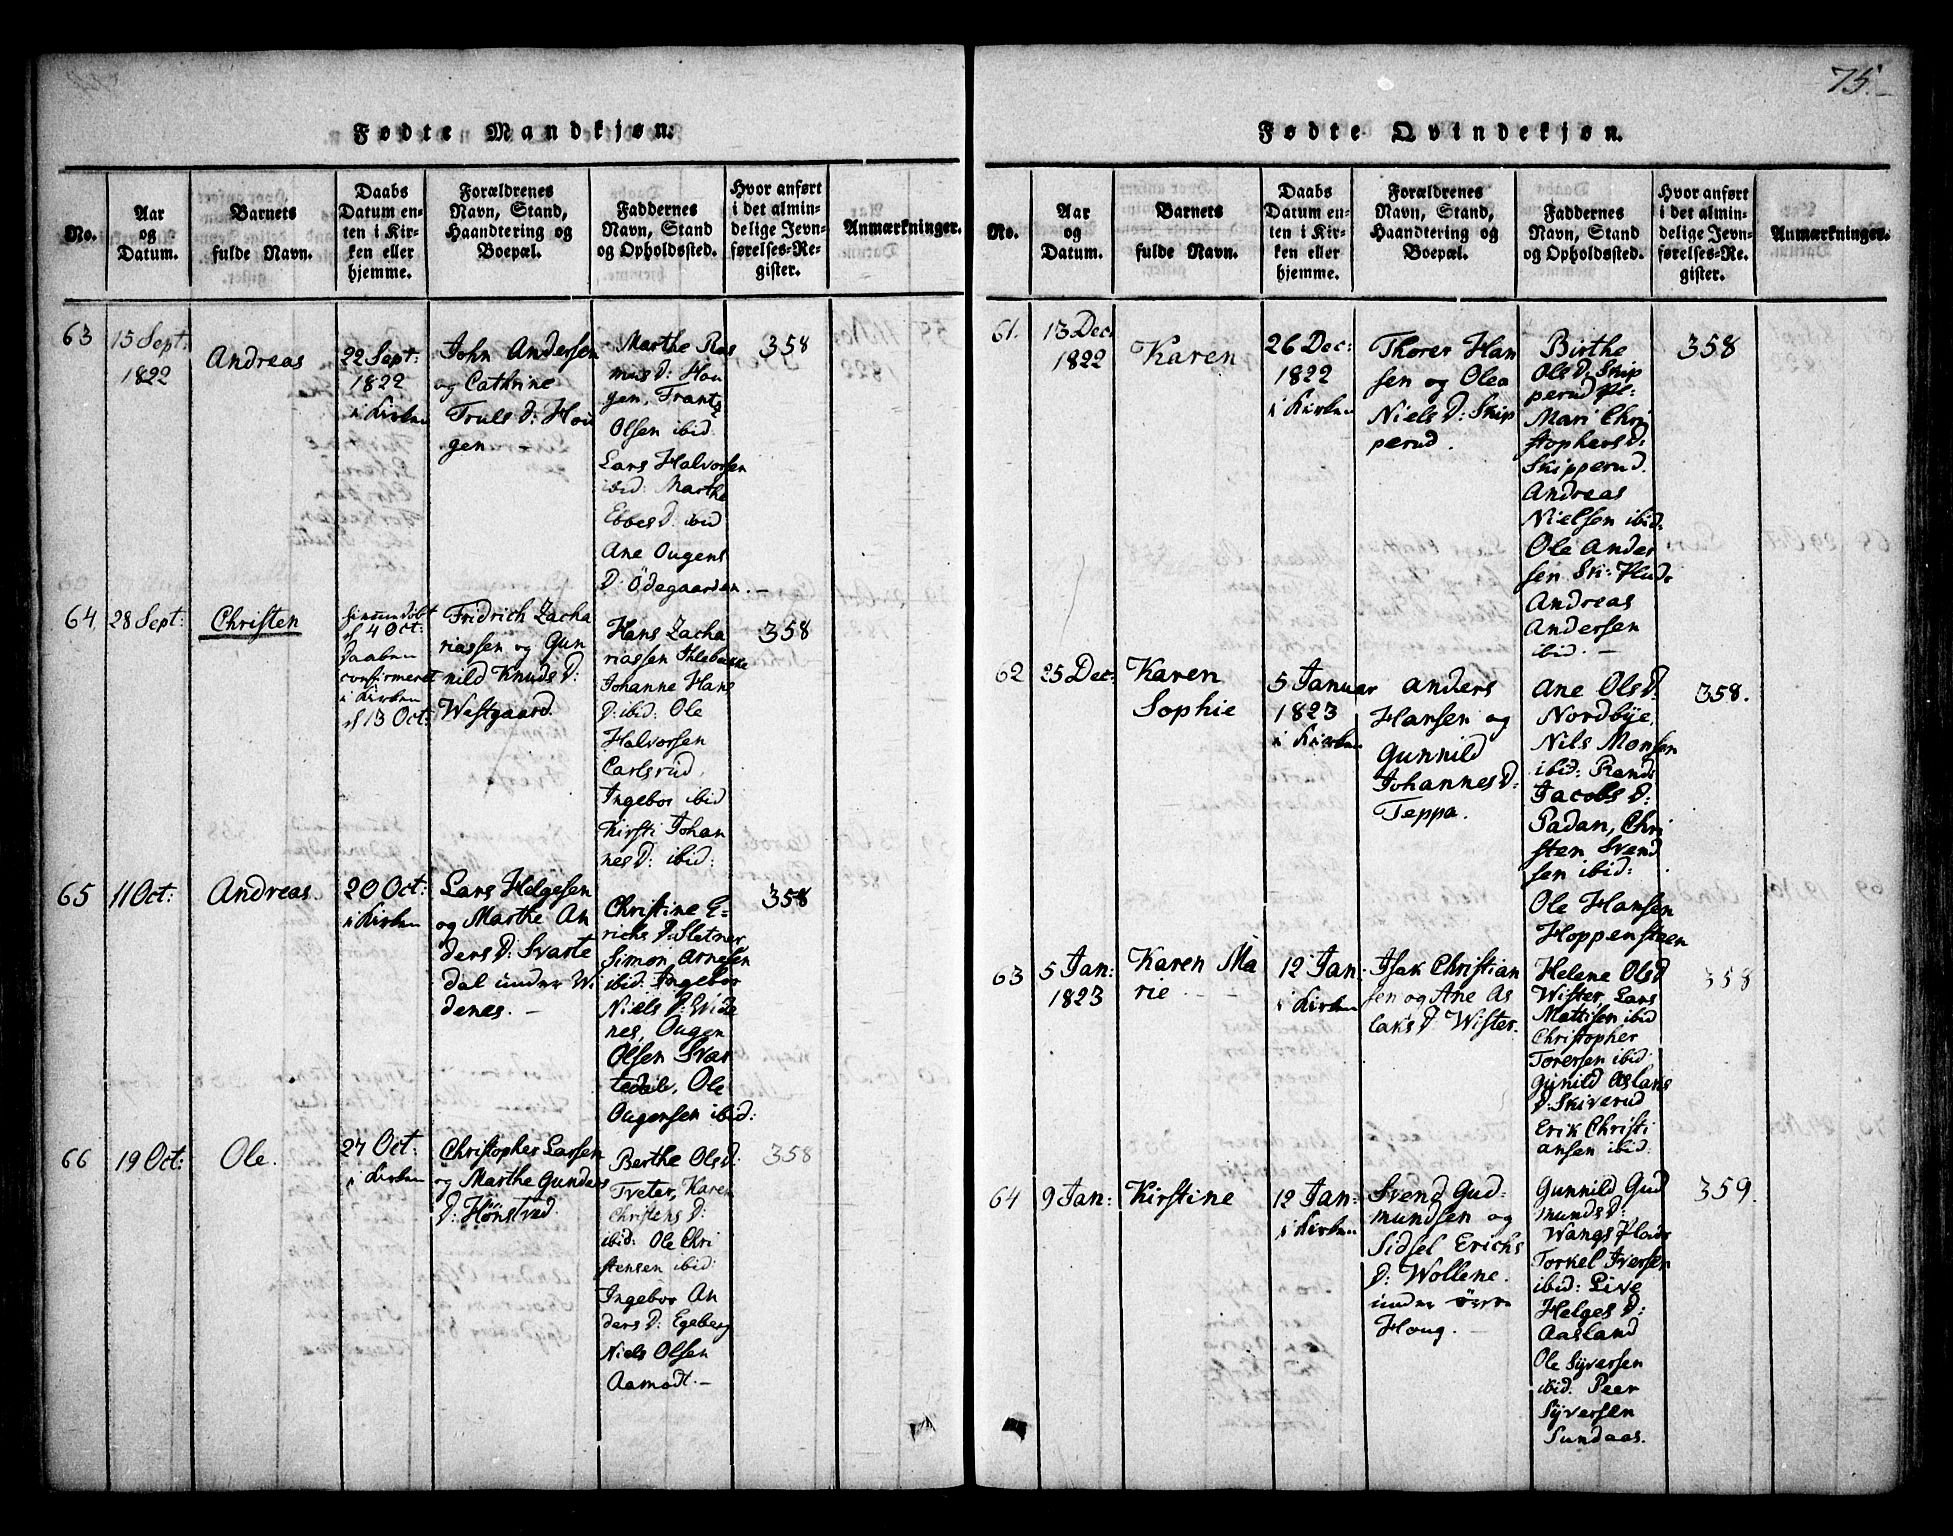 75.
Fødte Mandkjøn.
No.
Aar
og
Datum.
Barnets
fulde Navn.
Daabs
Datum en-
ten i Kir-
ken eller
hjemme.
Forældrenes
Navn, Stand,
Haandtering og
Boepæl.
Faddernes
Navn, Stand
og Opholdssted.
Hvor anført
i det almin-
delige Jevn-
førelses-Re-
gister.
Anmærkninger.
63
15 Sept:
1822
Andreas
22 Sept:
1822
i Kirken
John Andersen
og Cathrine
Truls D: Hou
gen. –
Marthe Ras
mus D: Hou
gen, Frantz
Olsen ibid.
Lars Halvorsen
ibid: Marthe
Ebbes D: ibid
Ane Ougens
D: Ödegaarden. –
358
64
28 Sept:
Christen
d 4 Oct:
Daaben
confirmeret
i Kirken
d 13 Oct:
Fridrich Zacha
riassen og Gun
nild Knuds D:
Westgaard.
Hans Zacha
riassen Ihlebække
Johanne Hans
D: ibid: Ole
Halvorsen
Carlsrud,
Ingebor ibid
Kirsti Johan
nes D: ibid:
358
65
11 Oct:
Andreas.
20 Oct:
i Kirken
Lars Helgesen
og Marthe An
ders D: Svarte
dal under Wi
denes. –
Christine E-
richs D: Sletner
Simon Arnesen
ibid: Ingebor
Niels D: Wide
nes, Ougen
Olsen Svar
tedal, Ole
Ougensen ibid:
358
66
19 Oct:
Ole.
27 Oct:
i Kirken
Christopher Larsen
og Marthe Gunders
D: Hönstved
Berthe Ols D:
Tveter, Karen
Christens D:
ibid: Ole Chri
stensen ibid:
Ingebor An
ders D: Egeberg
Niels Olsen
Aamodt. –
358
Fødte Qvindekjøn.
No.
Aar
og
Datum.
Barnets
fulde Navn.
Daabs
Datum en-
ten i Kir-
ken eller
hjemme.
Forældrenes
Navn, Stand,
Haandtering og
Boepæl.
Faddernes
Navn, Stand
og Opholdssted.
Hvor anført
i det almin-
delige Jevn-
førelses-Re-
gister.
Anmærkninger.
61.
13 Dec:
1822
Karen
26 Dec:
1822
i Kirken
Thorer Han
sen og Olea
Niels D: Skip
perud.
Birthe
Ols D: Skip
perud Pl:
Mari Chri
stophers D:
Skipperud.
Andreas
Nielsen ibid:
Ole Ander
sen Sk: Plads
Andreas
Andersen
ibid. –
358
62
25 Dec:
Karen
Sophie
5 Januar
1823
i Kirken
Anders
Hansen og
Gunnild
Johannes D:
Teppa.
Ane Ols D:
Nordbÿe,
Nils Monsen
ibid: Randi
Jacobs D:
Padan, Chri
sten Svend
sen ibid:
Ole Hansen
Hoppensteen
358.
63
5 Jan:
1823
Karen Ma
rie. –
12 Jan:
i Kirken
Isak Christian
sen og Ane As
laks D. Wister.
Helene Ols D
Wister, Lars
Mattisen ibid
Christopher
Torersen ibid
Gunild Aslaks
D: Skiverud
Erik Christi
ansen ibid:
358
64
9 Jan:
Kirstine
12 Jan:
i Kirken
Svend Gud-
mundsen og
Sidsel Erichs
D: Wollene.
under övre
Houg. –
Gunnild Gud
munds D:
Wangs Plads
Torkel Iversen
ibid: Live
Helges D:
Aasland
Ole Sÿversen
ibid. Peer
Sÿversen
Sundaas.
359.